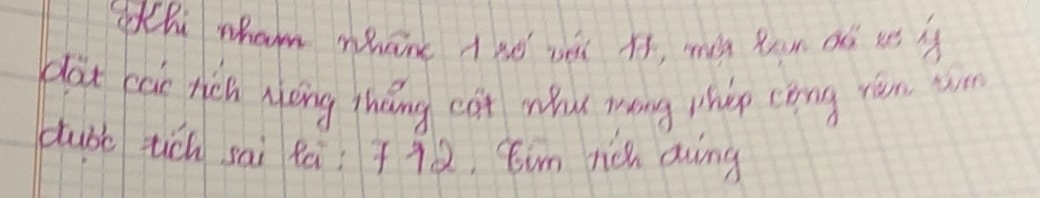 Khi nham nhân 1 số với 11, một bạn đã vô ý
đặt các tích riêng thẳng cột như trong phép cộng nên
được tích sai là: 792. Tìm tích đúng